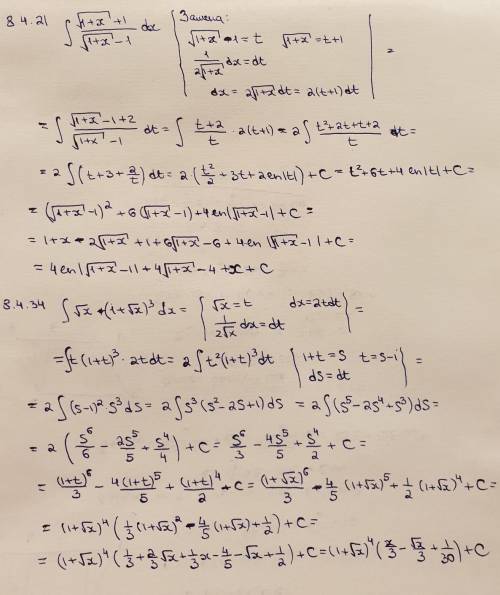 8.4.21 ∫ (√(1+x) +1)/(√(1+x) −1) dx | Замена: √(1+x) −1 = t √(1+x) = t+1
1/(2√(1+x)) dx = dt
dx = 2√(1+x) dt = 2(t+1)dt | =
= ∫ (√(1+x) −1+2)/(√(1+x) −1) dt = ∫ (t+2)/t · 2(t+1) = 2∫ (t²+2t+t+2)/t dt =
= 2∫(t+3+2/t)dt = 2·(t²/2 + 3t + 2ln|t|) + C = t²+6t+4 ln|t|+C =
= (√(1+x) −1)² + 6(√(1+x) −1) + 4ln|√(1+x) −1| + C =
= 1+x − 2√(1+x) + 1 + 6√(1+x) − 6 + 4ln|√(1+x) −1| + C =
= 4ln|√(1+x) −1| + 4√(1+x) − 4 + x + C
8.4.34 ∫ √x · (1+√x)³ dx = { √x = t dx = 2tdt
1/(2√x) dx = dt } =
= ∫ t(1+t)³ · 2tdt = 2∫ t²(1+t)³dt { 1+t = S t = S−1
dS = dt } =
= 2∫(S−1)² · S³dS = 2∫S³(S²−2S+1)dS = 2∫(S⁵−2S⁴+S³)dS =
= 2(S⁶/6 − 2S⁵/5 + S⁴/4) + C = S⁶/3 − 4S⁵/5 + S⁴/2 + C =
= (1+t)⁶/3 − 4(1+t)⁵/5 + (1+t)⁴/2 + C = (1+√x)⁶/3 − 4/5 (1+√x)⁵ + 1/2 (1+√x)⁴ + C =
= (1+√x)⁴(1/3 (1+√x)² − 4/5 (1+√x) + 1/2) + C =
= (1+√x)⁴(1/3 + 2/3 √x + 1/3 x − 4/5 − √x + 1/2) + C = (1+√x)⁴(x/3 − √x/3 + 1/30) + C